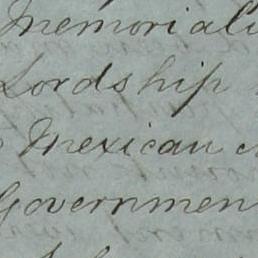 Memoriali
Lordship
Mexican
Governmen